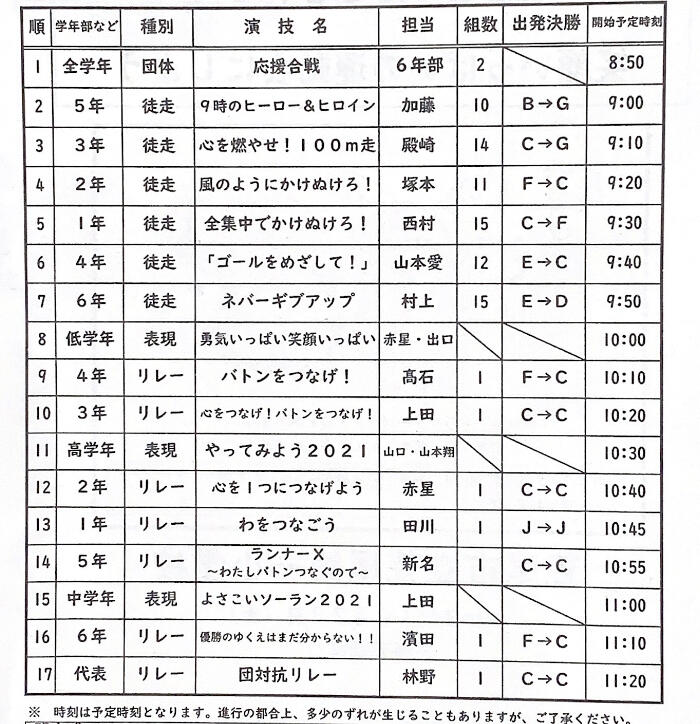 順 学年部など 種別 演技名 担当 組数 出発決勝 開始予定時刻
1 全学年 団体 応援合戦 6年部 2 8:50
2 5年 徒走 9時のヒーロー&ヒロイン 加藤 10 B→G 9:00
3 3年 徒走 心を燃やせ！100m走 殿崎 14 C→G 9:10
4 2年 徒走 風のようにかけぬけろ！ 塚本 11 F→C 9:20
5 1年 徒走 全集中でかけぬけろ！ 西村 15 C→F 9:30
6 4年 徒走 「ゴールをめざして！」 山本愛 12 E→C 9:40
7 6年 徒走 ネバーギブアップ 村上 15 E→D 9:50
8 低学年 表現 勇気いっぱい笑顔いっぱい 赤星・出口 10:00
9 4年 リレー バトンをつなげ！ 髙石 1 F→C 10:10
10 3年 リレー 心をつなげ！バトンをつなげ！ 上田 1 C→C 10:20
11 高学年 表現 やってみよう2021 山口・山本翔 10:30
12 2年 リレー 心を1つにつなげよう 赤星 1 C→C 10:40
13 1年 リレー わをつなごう 田川 1 J→J 10:45
14 5年 リレー ランナーX 新名 1 C→C 10:55
～わたしバトンつなぐので～
15 中学年 表現 よさこいソーラン2021 上田 11:00
16 6年 リレー 優勝のゆくえはまだ分からない！！ 濱田 1 F→C 11:10
17 代表 リレー 団対抗リレー 林野 1 C→C 11:20
※ 時刻は予定時刻となります。進行の都合上、多少のずれが生じることもありますが、ご了承ください。